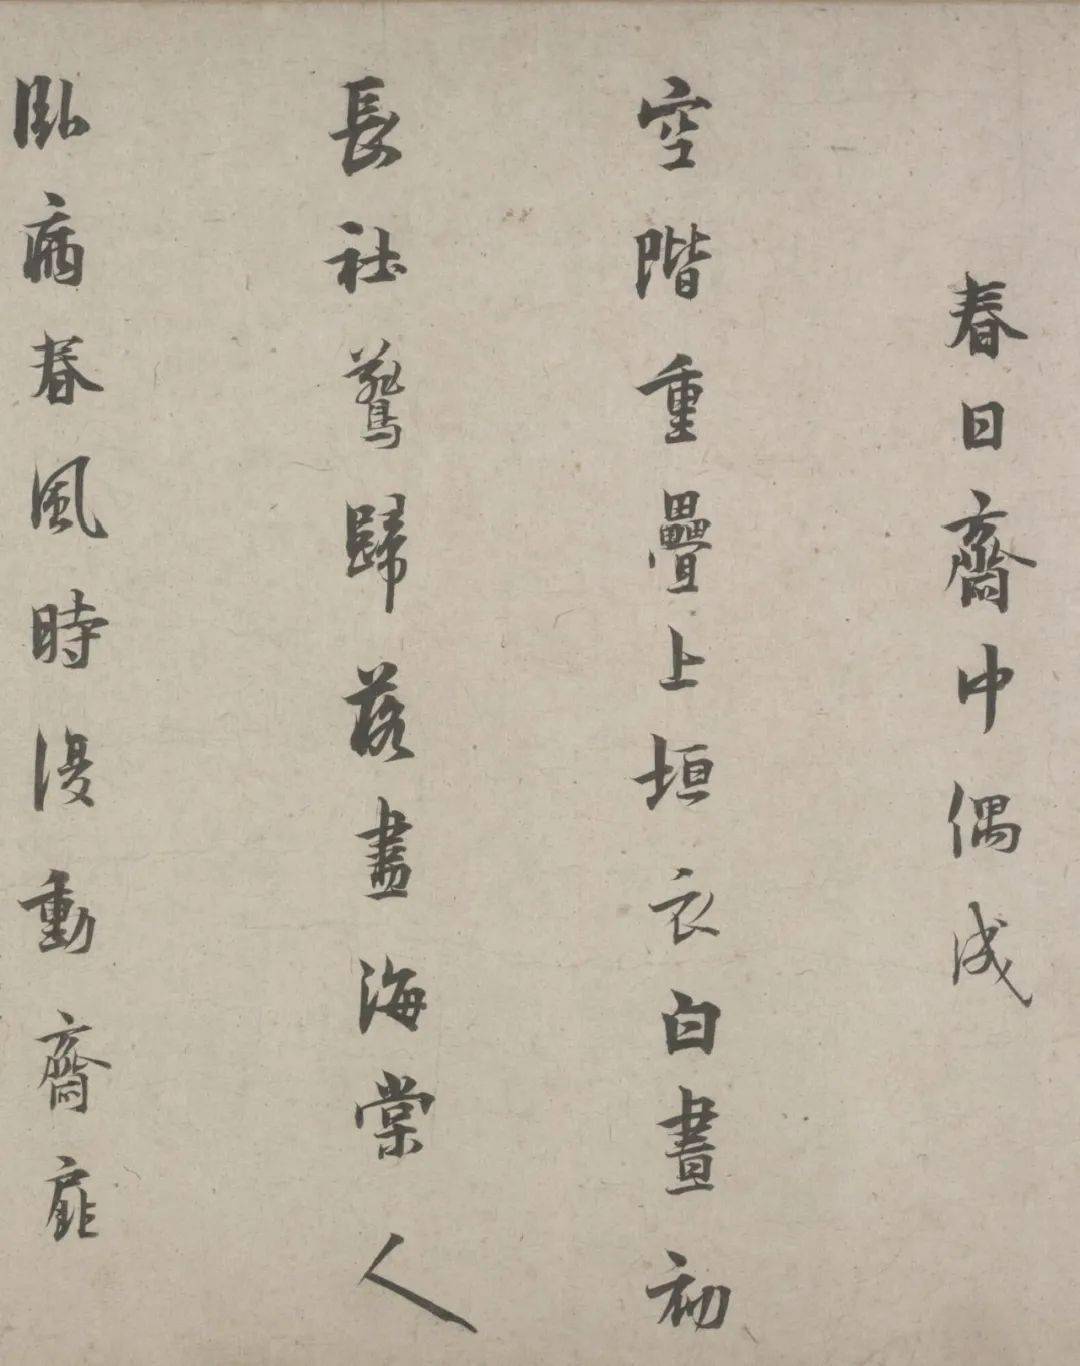 春日齋中偶成
空階重疊上垣衣白晝初
長社鷰歸落盡海棠人
臥病春風時復動齋扉